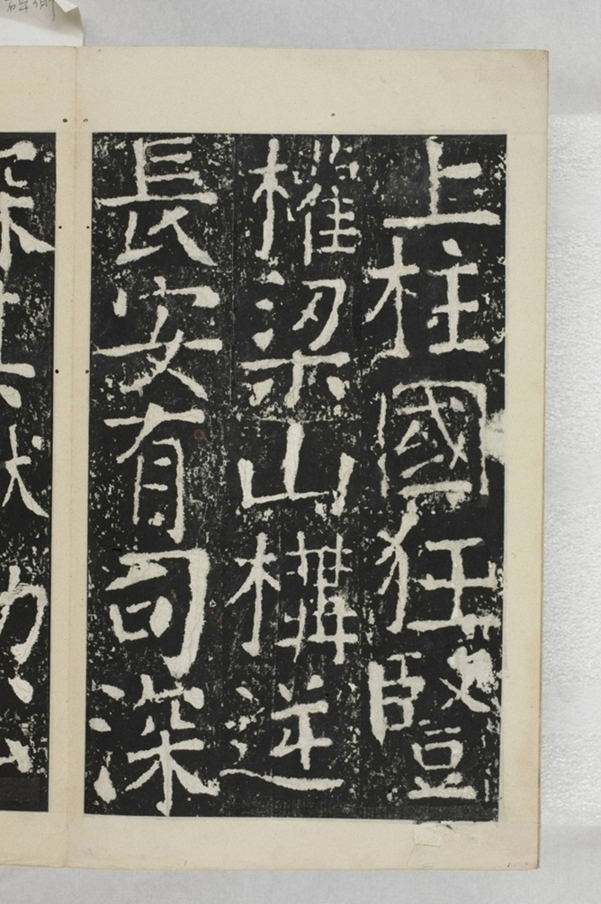 上柱國狂豎
權梁山構逆
長安有司深